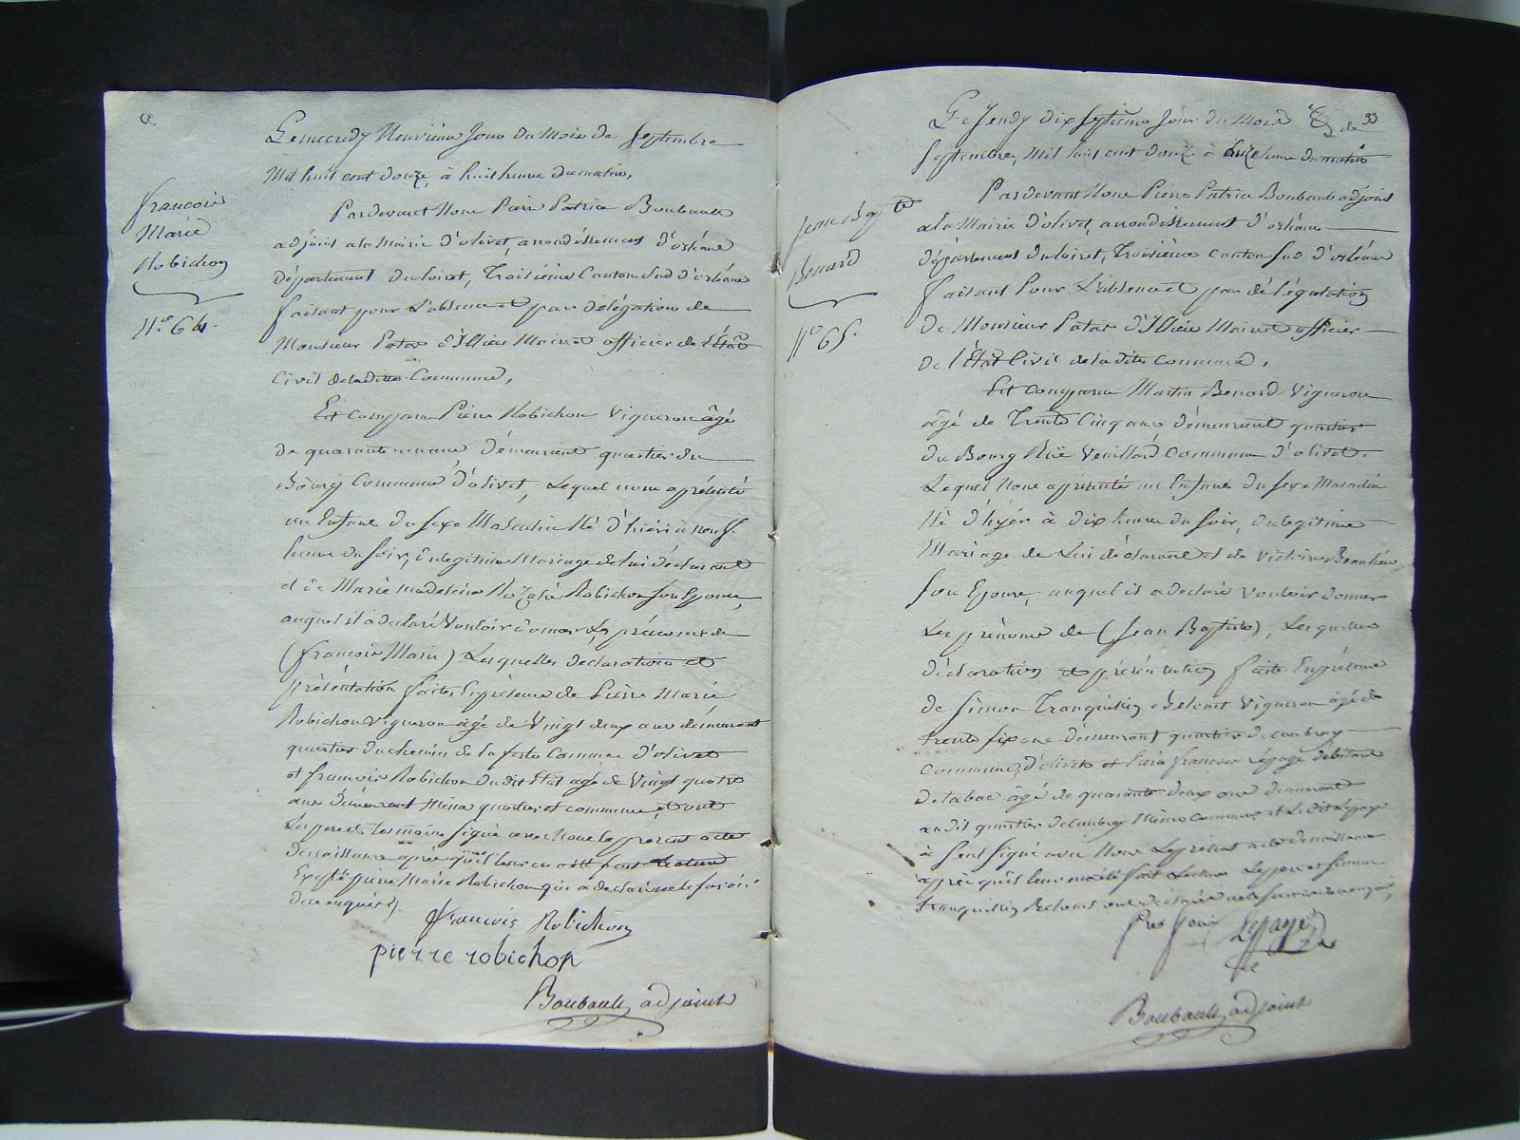 Le mercredy Neuvième Jour du Mois de Septembre
Mil huit cent douze, à huit heure du matin,
François
Marie
Robichon
N.o 64.
Pardevant Nous Pierre Patrice Boubault
adjoint a la Mairie d'olivet, arrondissement d'orléans
département du loiret, Troisième Canton Sud d'orléans
faisant pour L'absence et par délégation de
Monsieur Patas d'Illiers Maire et officier de l'État
Civil de la ditte Commune,
Est comparu Pierre Robichon Vigneron âgé
de quarante neuf ans, Démeurant quartier du
Bourg Commune d'olivet, Lequel nous a présenté
un Enfant du sexe Masculin Né d'hièr à neuf
heure du Soir, du legitime Mariage de lui déclarant
et de Marie madeleine Robichon son Epouse,
auquel il a déclaré Vouloir donner les prénoms de
(françois Marie) Les quelles declaration et
présentation faites En présence de Pierre Marie
Robichon vigneron âgé de Vingt deux ans démeurant
quartier du chemin de la ferté Commune d'olivet
et françois Robichon du dit Etat agé de Vingt quatre
ans démeurant même quartier et commune, et ont
Les pere et temoins signé avec Nous le present acte
de naissance après qu'il leur en a été fait lecture
Excepté pierre Marie Robichon qui a declaré ne le savoir
de ce enquis.
françois Robichon
pierre robichon
Boubault adjoint
33
Le Jeudy dix Septieme Jour du Mois de
Septembre, Mil huit cent douze à onze heure du matin
Jean Bap.te
Benard
N.o 65.
Pardevant Nous Pierre Patrice Boubault adjoint
a la Mairie d'olivet, arrondissement d'orléans
département du loiret, Troisième canton sud d'orléans
faisant Pour L'absence et par délégation
de Monsieur Patas d'Illiers Maire et officier
de l'État Civil de la ditte commune,
Est comparu Martin Benard Vigneron
âgé de Trente Cinq ans démeurant quartier
du Bourg Rüe Vieillard Commune d'olivet.
Lequel Nous a présenté un Enfant du sexe Masculin
Né d'hyér à dix heure du soir, du legitime
Mariage de Lui déclarant et de Victoire
son Epouse, auquel il a declaré Vouloir donner
Les prénoms de (Jean Baptiste), Les quelles
déclaration et présentation faite En présence
de Simon Tranquillin Vigneron âgé de
trente six ans démeurant quartier de
Commune d'olivet et françois Lepage debitant
de tabac âgé de quarante deux ans demeurant
au dit quartier Même Commune et Le dit Lepage
à seul signé avec Nous Le présent acte de naissance
après qu'il leur en a été fait Lecture Le pere et Simon
Tranquillin
Lepage
Boubault adjoint